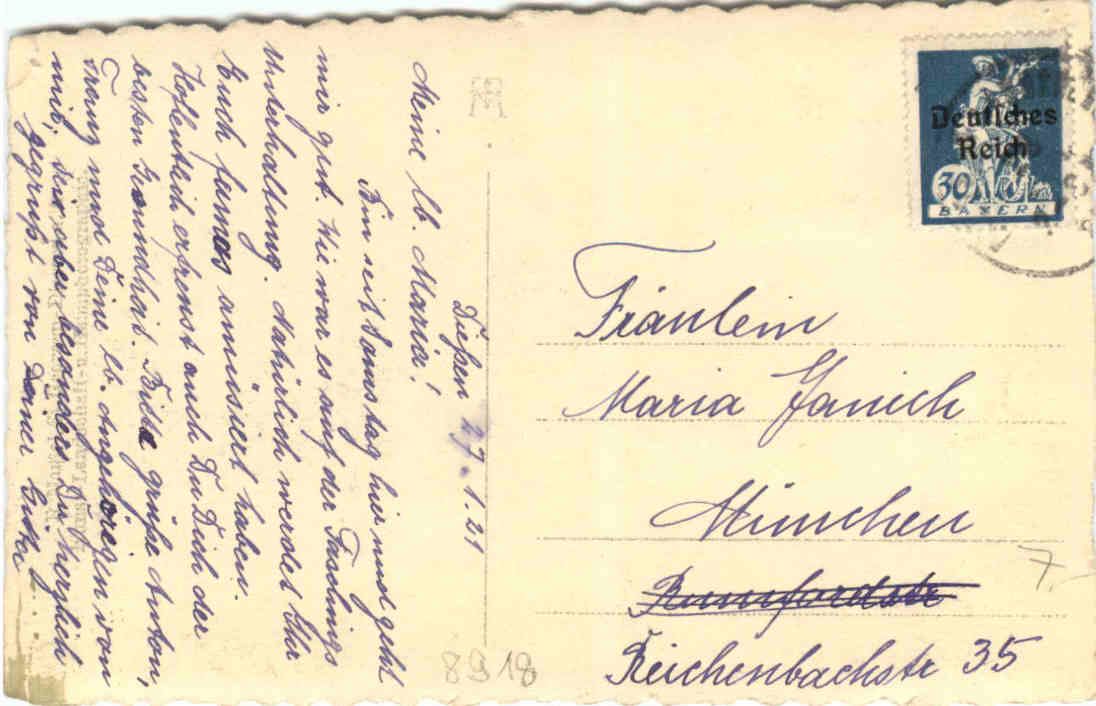 Dießen 27.1.21
Meine lb. Maria!
Bin seit Samstag hier und geht
mir gut. Wie war es auf der Faschings
Unterhaltung. Natürlich werdet Ihr
Euch famos amüsiert haben.
Hoffentlich erfreust auch Du Dich der
besten Gesundheit. Bitte grüße Anton,
und Deine lb. Angehörigen von
mir, sei aber besonders Du herzlich
gegrüßt von Deiner
Deutsches
Reich
30
BAYERN
Fräulein
Maria Janich
München
Rumfordstr
Reichenbachstr 35
7.
8918